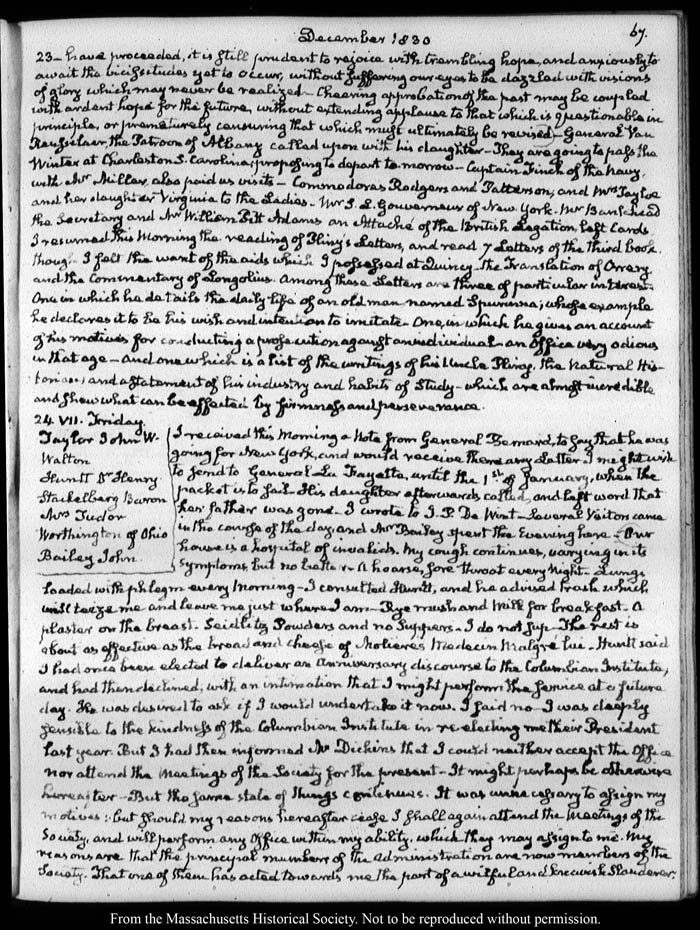 December 1830
67.
23 – have proceeded, it is still prudent to rejoice with trembling hope, and anxiously to
await the vicissitudes yet to occur, without suffering our eyes to be dazzled with visions
of glory which may never be realized – Cheering approbation of the past may be coupled
with ardent hope for the future, without extending applause to that which is questionable in
principle, or prematurely censuring that which must ultimately be revised – General Van
Rensselaer, the Patroon of Albany called upon with his daughter – They are going to pass the
Winter at Charleston S. Carolina, proposing to depart to-morrow – Captain Finch of the Navy,
with Mr Miller, also paid us visits – Commodores Rodgers and Patterson, and Mrs Tayloe
and her daughter Virginia to the Ladies – Mr S. L. Gouverneur of New York – Mr Bankhead
the Secretary and Mr William Pitt Adams an Attaché of the British Legation left Cards
I resumed this Morning the reading of Pliny's Letters, and read 7 Letters of the third book,
though I felt the want of the aids which I possessed at Quincy – the Translation of Orrery,
and the Commentary of Longolius. Among these Letters are three of particular interest.
One in which he details the daily life of an old man named Spurinna, whose example
he declares it to be his wish and intention to imitate – One, in which he gives an account
of his motives for conducting a prosecution against an individual – an Office very odious
in that age – and one which is a list of the writings of his Uncle Pliny, the Natural His-
torian; and a statement of his industry and habits of Study – which are almost incredible
and shew what can be effected by firmness and perseverance.
24. VII. Friday.
Taylor John W.
Walton
Huntt Dr Henry
Stackelberg Baron
Mrs Tudor
Worthington of Ohio
Bailey John
I received this Morning a Note from General Bernard, to say that he was
going for New York, and would receive there any Letter I might wish
to send to General La Fayette, until the 1st of January, when the
packet is to sail. His daughter afterwards called, and left word that
her father was gone. I wrote to J. P. De Wint – Several Visitors came
in the course of the day, and Mr Bailey spent the Evening here – Our
house is a hospital of invalids. My cough continues, varying in its
symptoms, but no better – A hoarse, sore throat every Night – Lungs
loaded with phlegm every Morning – I consulted Huntt, and he advised trash which
will teize me and leave me just where I am – Rye mush and Milk for breakfast. A
plaster on the breast. Seidlitz Powders and no Suppers – I do not sup. The rest is
about as effective as the bread and cheese of Molieres Medecin Malgré lui – Huntt said
I had once been elected to deliver an Anniversary discourse to the Columbian Institute,
and had then declined; with an intimation that I might perform the service at a future
day. He was desired to ask if I would undertake it now. I said no – I was deeply
sensible to the kindness of the Columbian Institute in re-electing me their President
last year. But I had then informed Mr Dickins that I could neither accept the Office
nor attend the Meetings of the Society for the present – It might perhaps be otherwise
hereafter – But the same state of things continues. It was unnecessary to assign my
motives; but should my reasons hereafter cease I shall again attend the Meetings of the
Society, and will perform any Office within my ability, which they may assign to me. My
reasons are that the principal members of the Administration are now members of the
Society. That one of them has acted towards me the part of a wilful and sneakish Slanderer.
From the Massachusetts Historical Society. Not to be reproduced without permission.